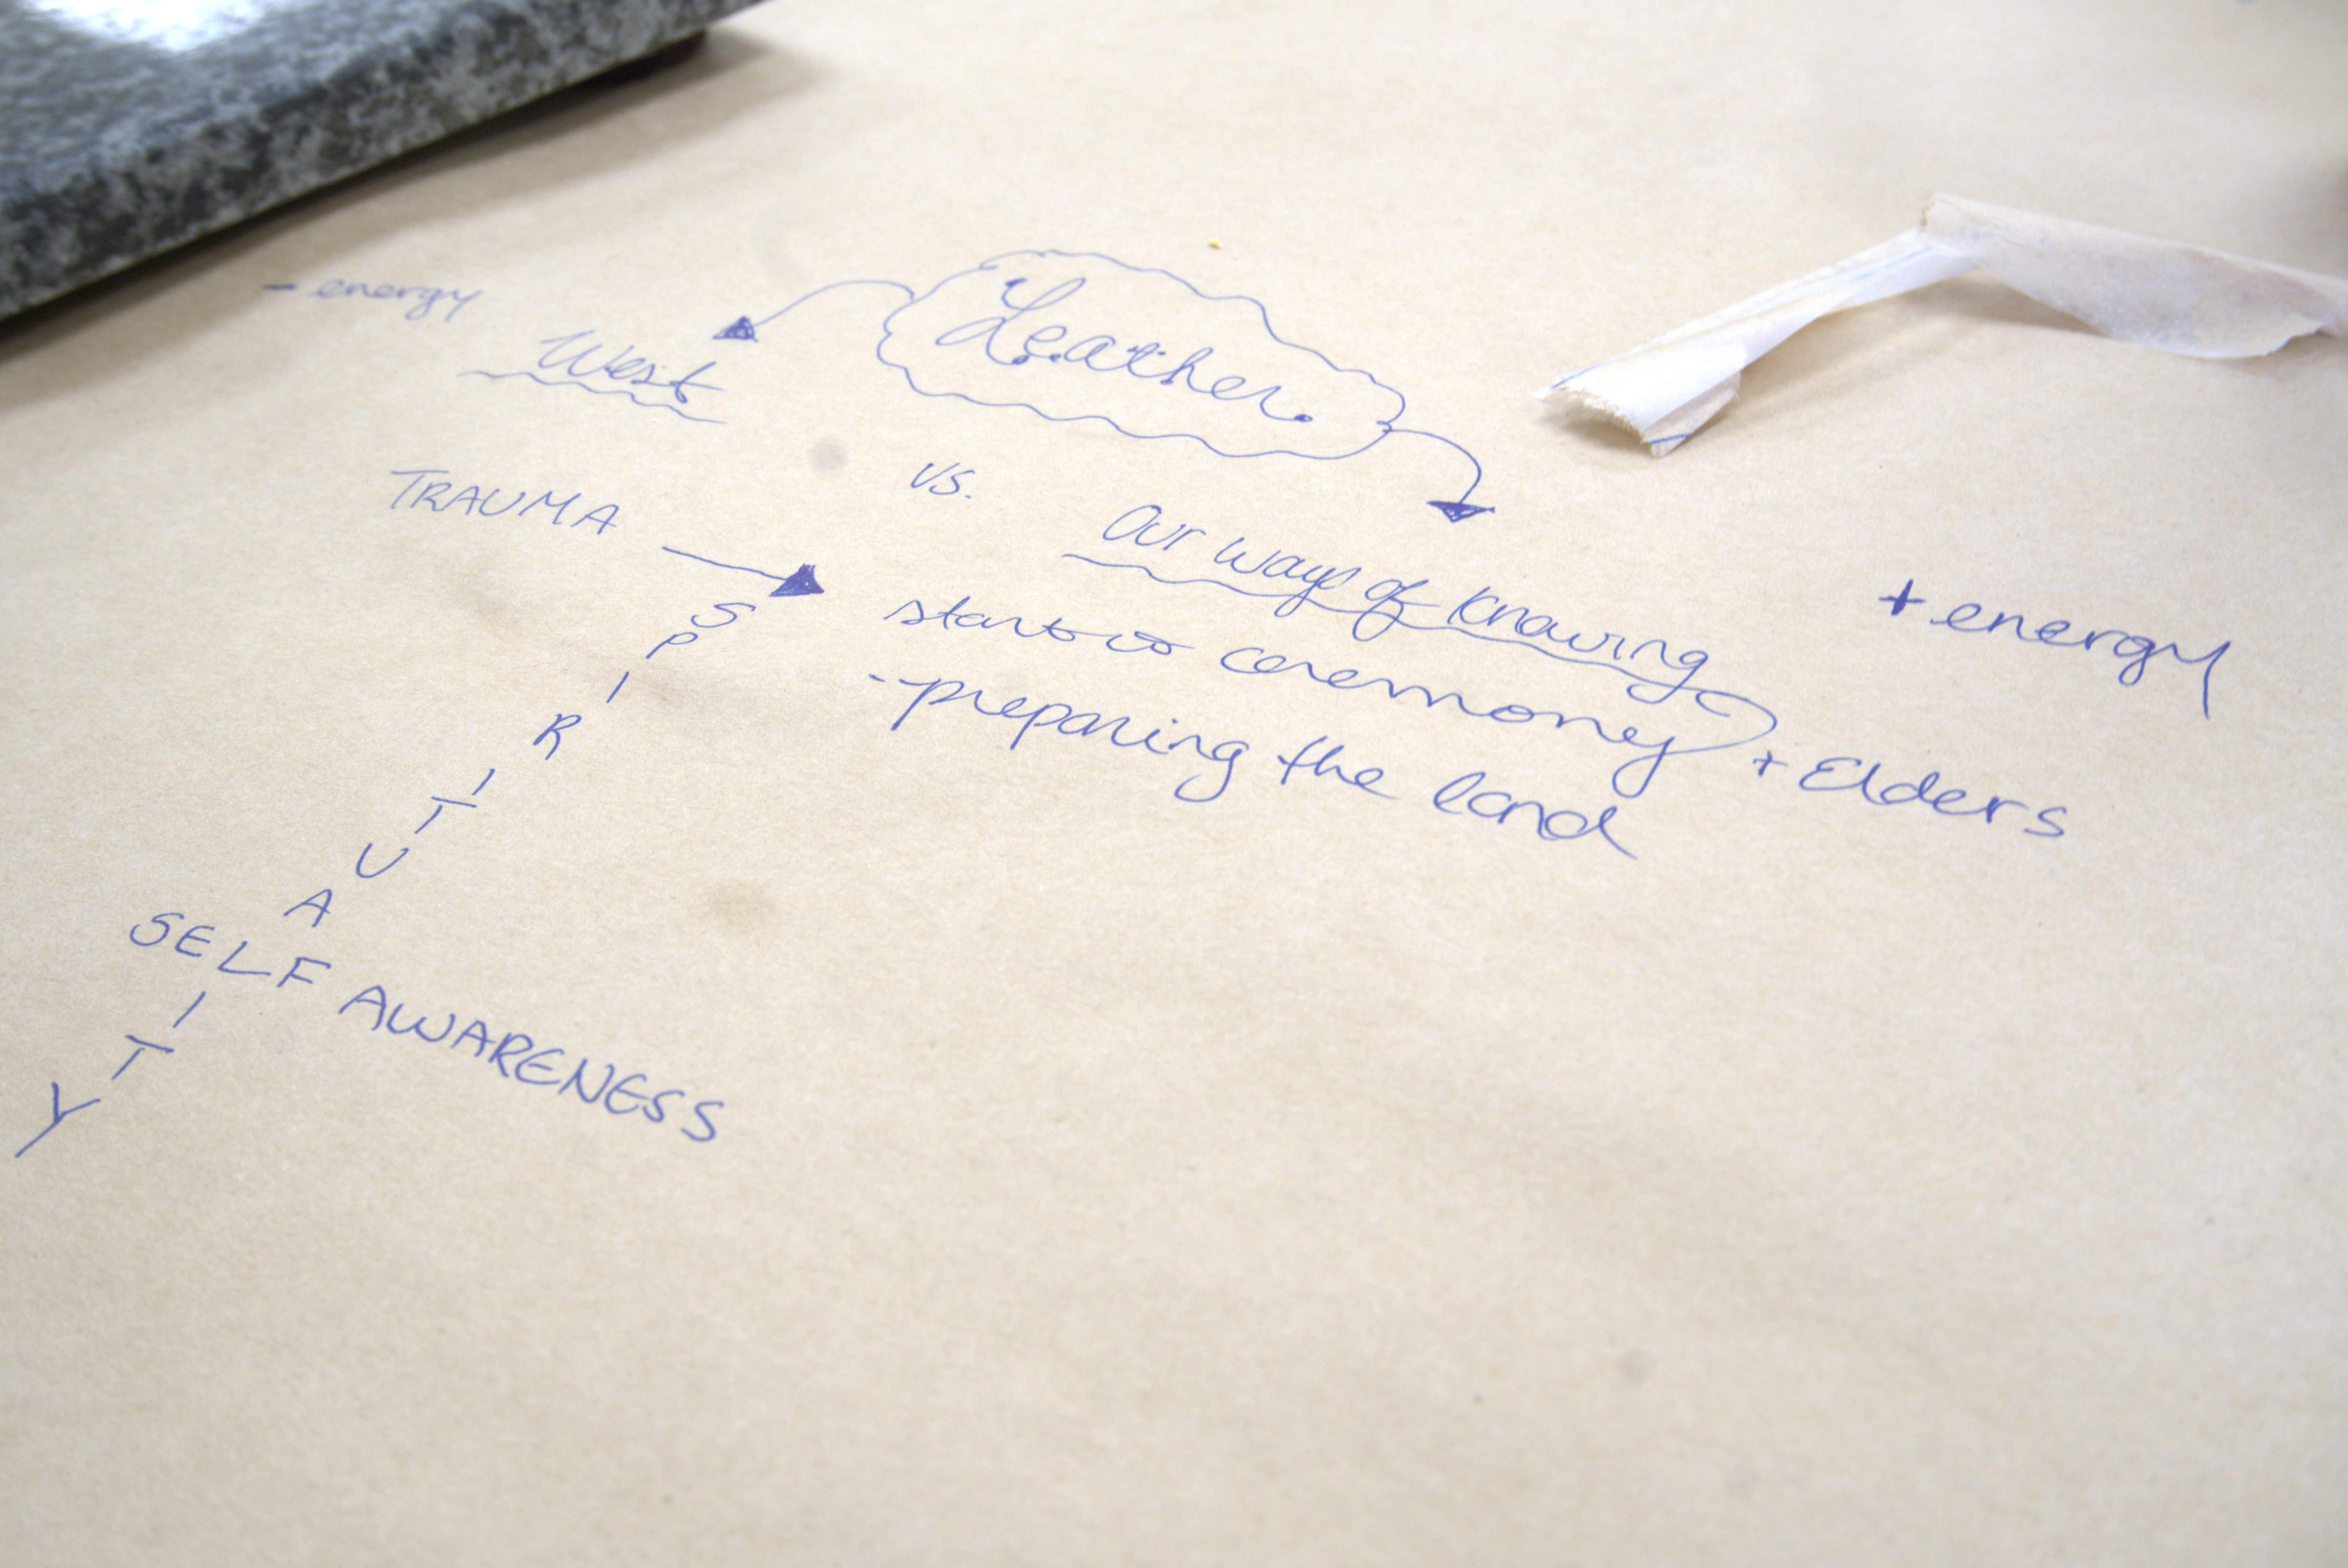 - energy
West
Leather
vs.
TRAUMA
Our ways of knowing
+ energy
start ceremony + Elders
- preparing the land
S
P
I
R
I
T
U
A
SELF AWARENESS
I
T
Y